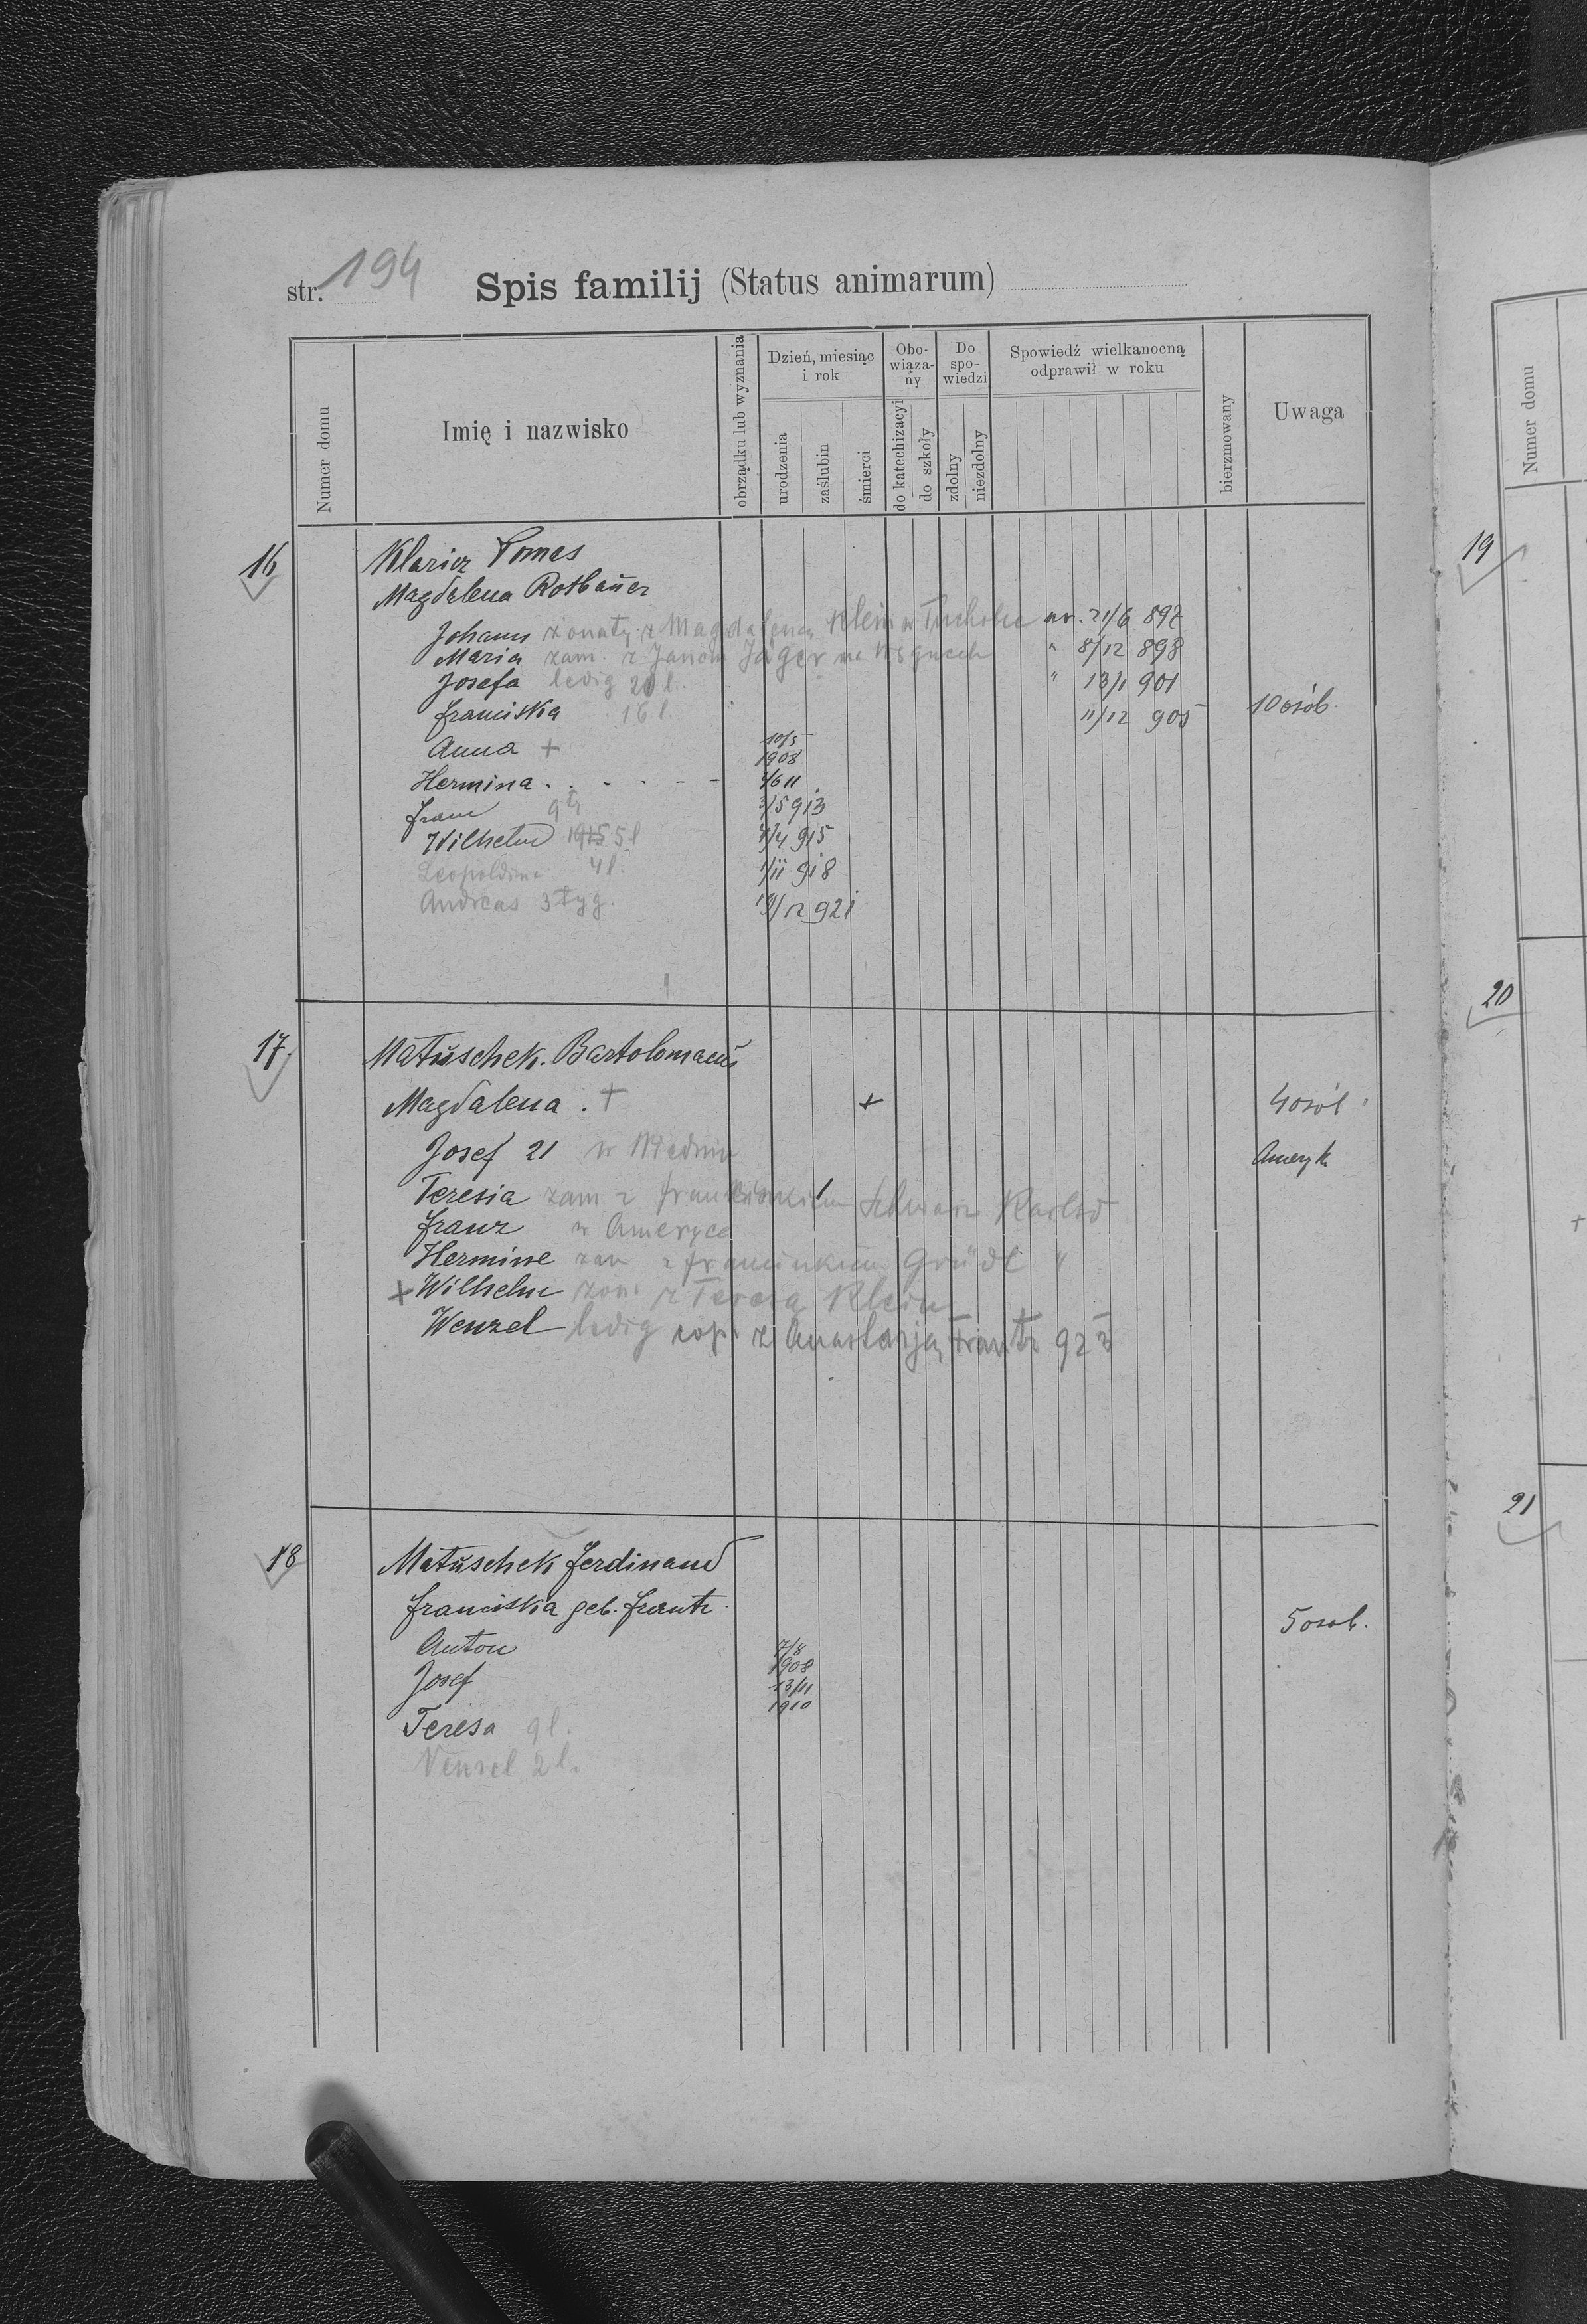 str. 194 Spis familij (Status animarum)
Numer domu
Imię i nazwisko
obrządku lub wyznania
Dzień, miesiąc i rok
urodzenia
zaślubin
śmierci
Obo-wiąza-ny
do katechizacyi
do szkoły
Do spo-wiedzi
zdolny
niezdolny
Spowiedź wielkanocną odprawił w roku
bierzmowany
Uwaga
16 Klarier Tomes
Magdalena Rotbaŭer
Johann żonaty z Magdaleną Klein w ur. 21/6 892
Maria zam. z Janem Jäger na " 8/12 898
Josefa ledig 20 l. " 13/1 901
Franciska 16 l. 11/12 905 10 osób.
Anna + 10/5 1908
Hermina . . - - - - /6 11
Franz 3/5 913
Wilhelm 1915 5 l /4 915
Leopoldina 4 l. /11 918
Andreas 3 tyg. 19/12 921
17. Matŭschek. Bartolomaeŭs
Magdalena . + + 4 osób
Josef 21 w Wiedniu Ameryk
Teresia zam z Franciszkiem Schwarz
Franz w Ameryce
Hermine zam z Franciszkiem Gründl "
+ Wilhelm zam z Teresą Klein
Wenzel ledig z Anastazją Frantz 923
18 Matŭschek Ferdinand
Franciska geb. Frantz 5 osob.
Anton 7/8 1908
Josef 13/11 1910
Teresa 9 l.
Venzel 2 l.
19
Numer domu
20
21